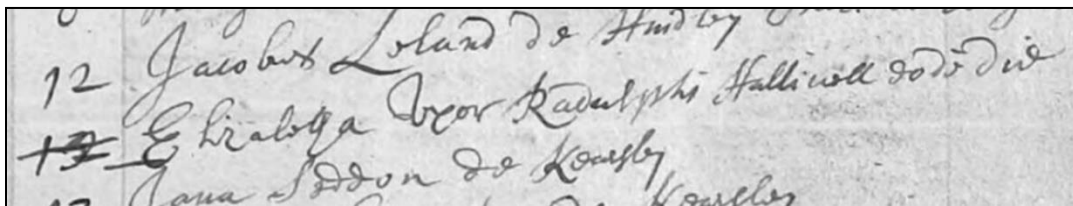 12 Jacobus Leland de Hindley
13 Elizabetha Uxor Radulphi Halliwell eodē die
Jana Seddon de Kearsley
Kearsley